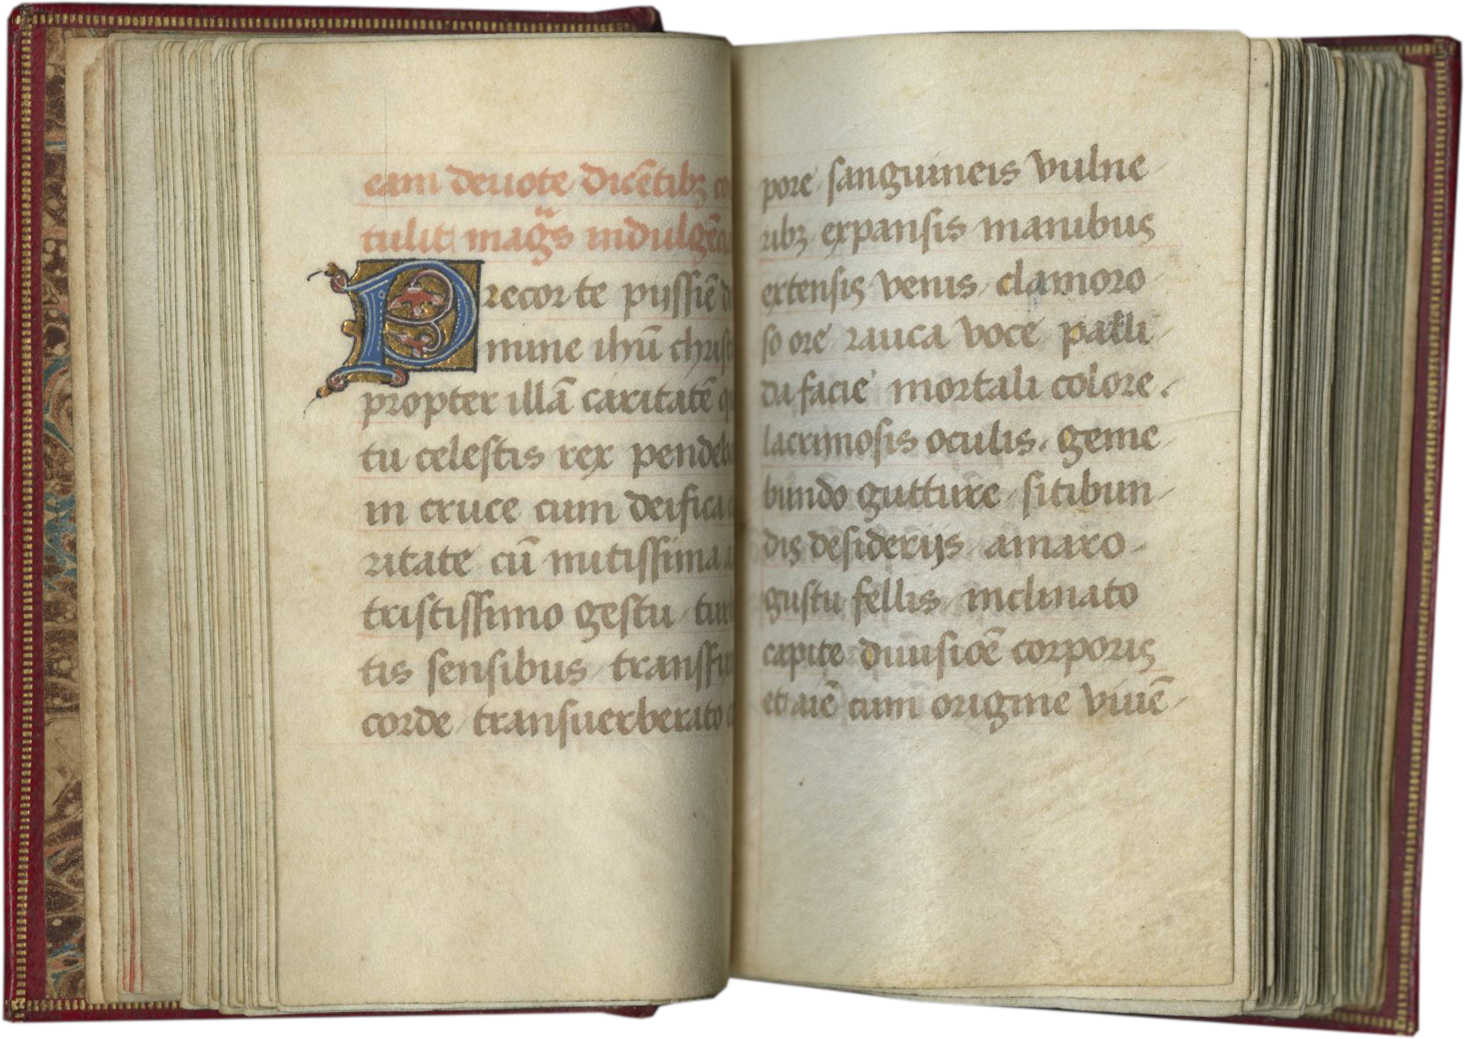 eam deuote dicẽtibꝫ cõ
tulit mag̃s indulgẽ
Precor te pijssiẽ d
mine ihũ chris
propter illã caritatẽ q
tu celestis rex pendeb
in cruce cum deifica
ritate cũ mitissima
tristissimo gestu tur
tis sensibus transfi
corde transuerberato
pore sanguineis vulne
ribꝫ expansis manibus
extensis venis clamoro
so ore rauca voce palli
da facie mortali colore.
lacrimosis oculis. geme
bundo gutture sitibun
dis desiderijs amaro
gustu fellis inclinato
capite diuisiõe corporis
et aiẽ cum origine viuẽ